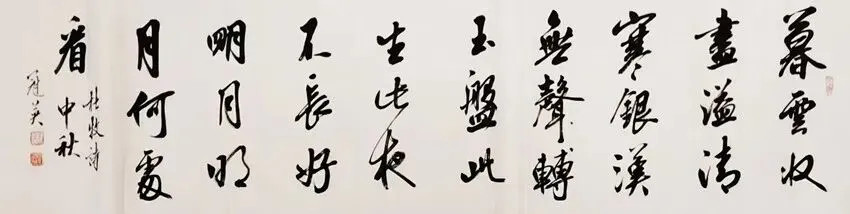 暮雲收
盡溢清
寒銀漢
無聲轉
玉盤此
生此夜
不長好
明月明
月何處
看
杜牧詩
中秋